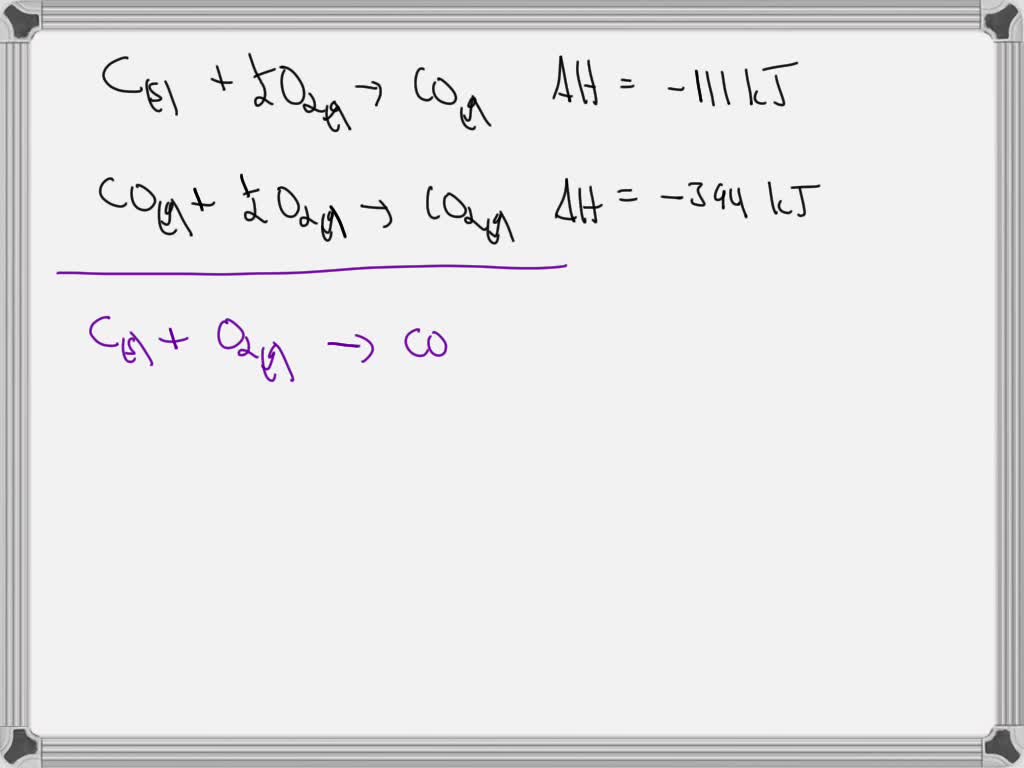 C(s) + ½O₂(g) → CO(g) ΔH = -111 kJ
CO(g) + ½O₂(g) → CO₂(g) ΔH = -394 kJ
C(s) + O₂(g) → CO